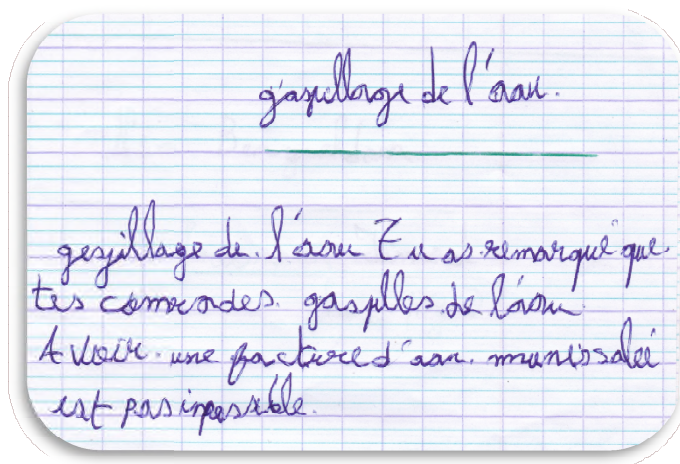 gaspillage de l'aau.
gespillage de l'aau Tu as remarqué que
tes comerades gasplles de l'aau
Avoir une facture d'aau. munissalé
est pas inpossible.